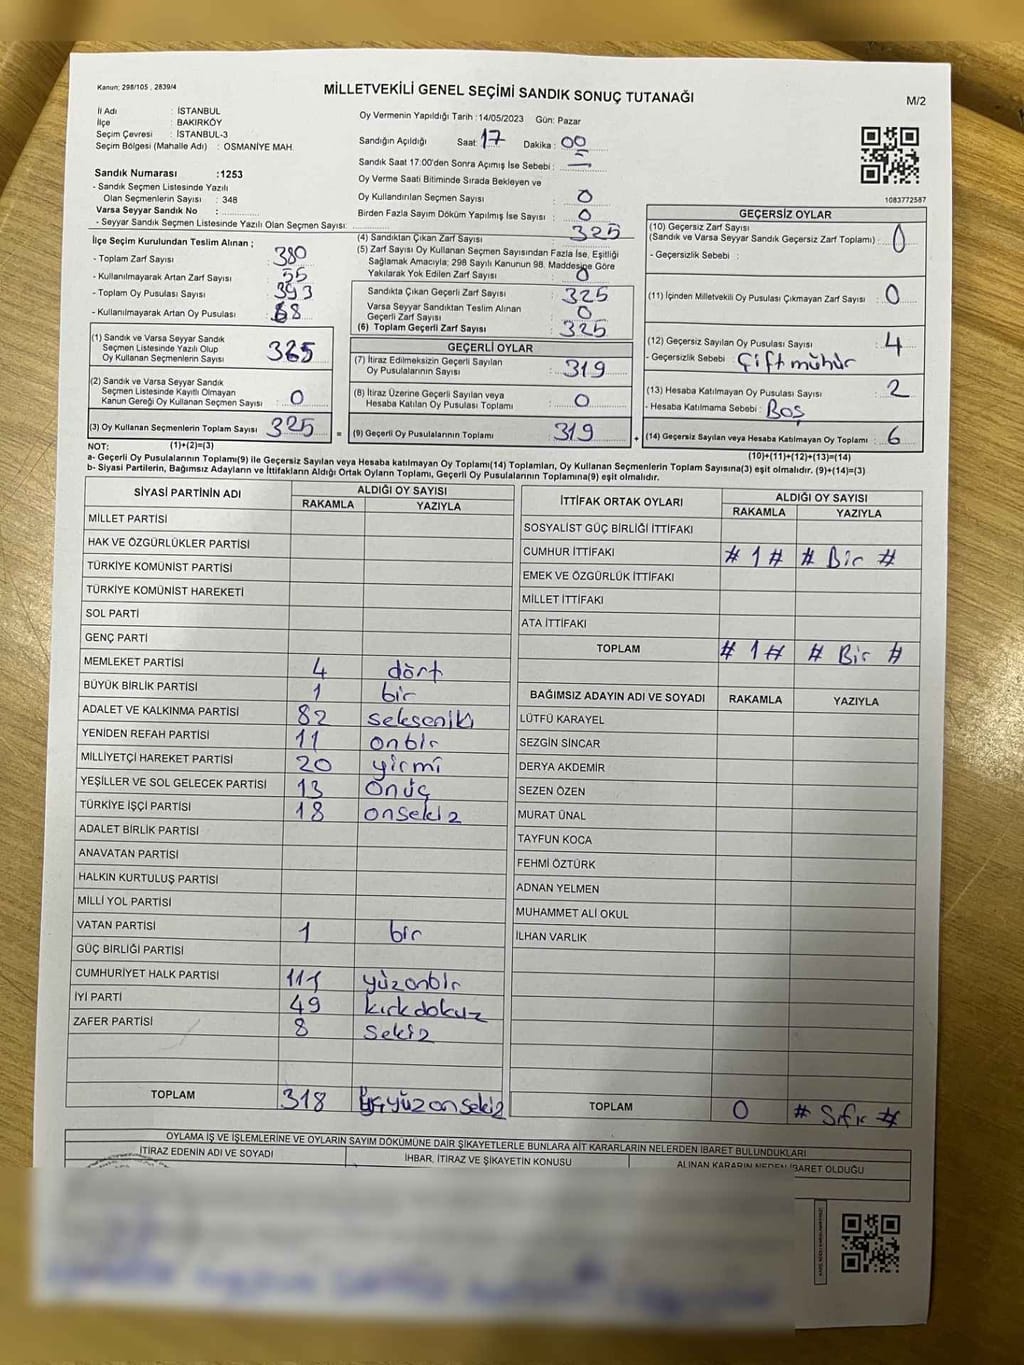 Kanun: 298/105 , 2839/4
MİLLETVEKİLİ GENEL SEÇİMİ SANDIK SONUÇ TUTANAĞI
M/2
İl Adı : İSTANBUL
İlçe : BAKIRKÖY
Seçim Çevresi : İSTANBUL-3
Seçim Bölgesi (Mahalle Adı) : OSMANİYE MAH.
Sandık Numarası :1253
- Sandık Seçmen Listesinde Yazılı
Olan Seçmenlerin Sayısı : 348
Varsa Seyyar Sandık No :
- Seyyar Sandık Seçmen Listesinde Yazılı Olan Seçmen Sayısı:
Oy Vermenin Yapıldığı Tarih :14/05/2023 Gün: Pazar
Sandığın Açıldığı Saat: 17 Dakika : 00
Sandık Saat 17:00'den Sonra Açımış İse Sebebi : —
Oy Verme Saati Bitiminde Sırada Bekleyen ve
Oy Kullandırılan Seçmen Sayısı : 0
Birden Fazla Sayım Döküm Yapılmış İse Sayısı : 0
1083772587
İlçe Seçim Kurulundan Teslim Alınan ;
- Toplam Zarf Sayısı : 380
- Kullanılmayarak Artan Zarf Sayısı : 55
- Toplam Oy Pusulası Sayısı : 393
- Kullanılmayarak Artan Oy Pusulası : 68
(1) Sandık ve Varsa Seyyar Sandık
Seçmen Listesinde Yazılı Olup
Oy Kullanan Seçmenlerin Sayısı 325
(2) Sandık ve Varsa Seyyar Sandık
Seçmen Listesinde Kayıtlı Olmayan
Kanun Gereği Oy Kullanan Seçmen Sayısı : 0
(3) Oy Kullanan Seçmenlerin Toplam Sayısı : 325
(4) Sandıktan Çıkan Zarf Sayısı : 325
(5) Zarf Sayısı Oy Kullanan Seçmen Sayısından Fazla İse, Eşitliği
Sağlamak Amacıyla; 298 Sayılı Kanunun 98. Maddesine Göre
Yakılarak Yok Edilen Zarf Sayısı : 0
Sandıkta Çıkan Geçerli Zarf Sayısı : 325
Varsa Seyyar Sandıktan Teslim Alınan
Geçerli Zarf Sayısı : 0
(6) Toplam Geçerli Zarf Sayısı : 325
GEÇERLİ OYLAR
(7) İtiraz Edilmeksizin Geçerli Sayılan
Oy Pusulalarının Sayısı : 319
(8) İtiraz Üzerine Geçerli Sayılan veya
Hesaba Katılan Oy Pusulası Toplamı : 0
= (9) Geçerli Oy Pusulalarının Toplamı : 319
GEÇERSİZ OYLAR
(10) Geçersiz Zarf Sayısı
(Sandık ve Varsa Seyyar Sandık Geçersiz Zarf Toplamı) : 0
- Geçersizlik Sebebi :
(11) İçinden Milletvekili Oy Pusulası Çıkmayan Zarf Sayısı : 0
(12) Geçersiz Sayılan Oy Pusulası Sayısı : 4
- Geçersizlik Sebebi : Çift mühür
(13) Hesaba Katılmayan Oy Pusulası Sayısı : 2
- Hesaba Katılmama Sebebi : Boş
+ (14) Geçersiz Sayılan veya Hesaba Katılmayan Oy Toplamı : 6
NOT: (1)+(2)=(3)
(10)+(11)+(12)+(13)=(14)
a- Geçerli Oy Pusulalarının Toplamı(9) ile Geçersiz Sayılan veya Hesaba katılmayan Oy Toplamı(14) Toplamları, Oy Kullanan Seçmenlerin Toplam Sayısına(3) eşit olmalıdır. (9)+(14)=(3)
b- Siyasi Partilerin, Bağımsız Adayların ve İttifakların Aldığı Ortak Oyların Toplamı, Geçerli Oy Pusulalarının Toplamına(9) eşit olmalıdır.
SİYASİ PARTİNİN ADI ALDIĞI OY SAYISI
RAKAMLA YAZIYLA
MİLLET PARTİSİ
HAK VE ÖZGÜRLÜKLER PARTİSİ
TÜRKİYE KOMÜNİST PARTİSİ
TÜRKİYE KOMÜNİST HAREKETİ
SOL PARTİ
GENÇ PARTİ
MEMLEKET PARTİSİ 4 dört
BÜYÜK BİRLİK PARTİSİ 1 bir
ADALET VE KALKINMA PARTİSİ 82 seksen iki
YENİDEN REFAH PARTİSİ 11 onbir
MİLLİYETÇİ HAREKET PARTİSİ 20 yirmi
YEŞİLLER VE SOL GELECEK PARTİSİ 13 onüç
TÜRKİYE İŞÇİ PARTİSİ 18 onsekiz
ADALET BİRLİK PARTİSİ
ANAVATAN PARTİSİ
HALKIN KURTULUŞ PARTİSİ
MİLLİ YOL PARTİSİ
VATAN PARTİSİ 1 bir
GÜÇ BİRLİĞİ PARTİSİ
CUMHURİYET HALK PARTİSİ 111 yüzonbir
İYİ PARTİ 49 kırkdokuz
ZAFER PARTİSİ 8 sekiz
TOPLAM 318 üçyüzonsekiz
İTTİFAK ORTAK OYLARI ALDIĞI OY SAYISI
RAKAMLA YAZIYLA
SOSYALİST GÜÇ BİRLİĞİ İTTİFAKI
CUMHUR İTTİFAKI # 1 # # Bir #
EMEK VE ÖZGÜRLÜK İTTİFAKI
MİLLET İTTİFAKI
ATA İTTİFAKI
TOPLAM # 1 # # Bir #
BAĞIMSIZ ADAYIN ADI VE SOYADI RAKAMLA YAZIYLA
LÜTFÜ KARAYEL
SEZGİN SİNCAR
DERYA AKDEMİR
SEZEN ÖZEN
MURAT ÜNAL
TAYFUN KOCA
FEHMİ ÖZTÜRK
ADNAN YELMEN
MUHAMMET ALİ OKUL
İLHAN VARLIK
TOPLAM 0 # Sıfır #
OYLAMA İŞ VE İŞLEMLERİNE VE OYLARIN SAYIM DÖKÜMÜNE DAİR ŞİKAYETLERLE BUNLARA AİT KARARLARIN NELERDEN İBARET BULUNDUKLARI
İTİRAZ EDENİN ADI VE SOYADI İHBAR, İTİRAZ VE ŞİKAYETİN KONUSU ALINAN KARARIN NEDEN İBARET OLDUĞU